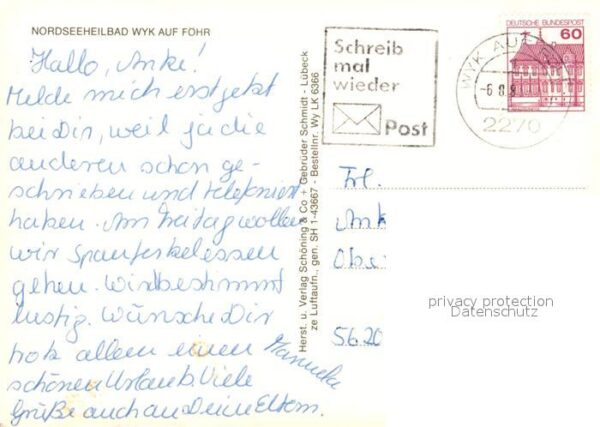 NORDSEEHEILBAD WYK AUF FÖHR
Hallo, Anke!
Melde mich erst jetzt
bei Dir, weil ja die
anderen schon ge-
schrieben und telefoniert
haben. Am Freitag wollen
wir Spanferkelessen
gehen. Wird bestimmt
lustig. Wünsche Dir
trotz allem einen
schönen Urlaub. Viele
Grüße auch an Deine Eltern.
Manuela
Herst. u. Verlag Schöning & Co + Gebrüder Schmidt - Lübeck
ze Luftaufn., gen. SH 1-43667 - Bestellnr. Wy LK 6366
Schreib
mal
wieder
Post
WYK AUF
-6.8.8
2270
DEUTSCHE BUNDESPOST
60
Frl.
Ank
Obe
5620
privacy protection
Datenschutz